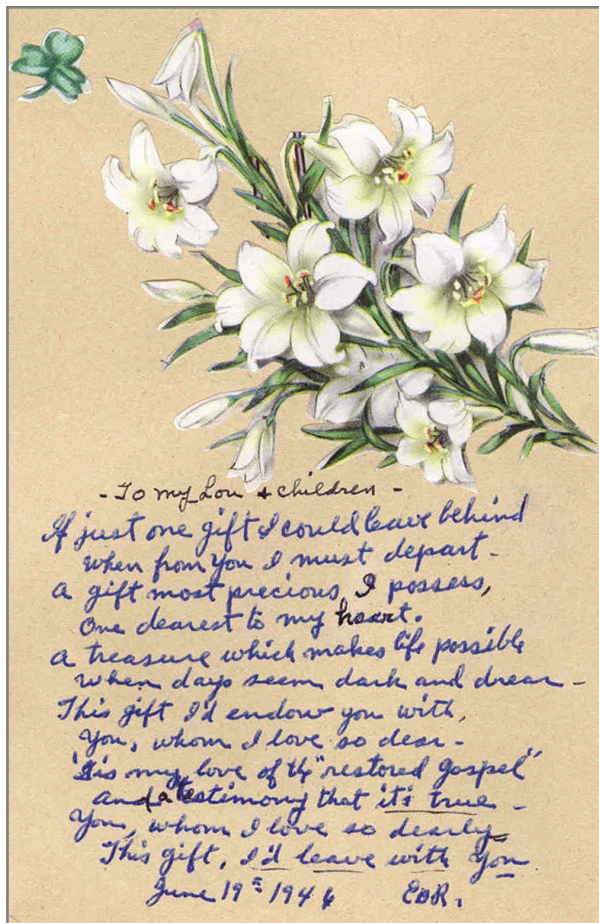 - To my Lou & children -
If just one gift I could leave behind
When from you I must depart -
A gift most precious I possess,
One dearest to my heart.
A treasure which makes life possible
When days seem dark and drear -
This gift I'd endow you with,
You, whom I love so dear -
'Tis my love of the "restored gospel"
and a testimony that it's true -
You, whom I love so dearly
This gift, I'd leave with you
June 19th 1946 EBR.